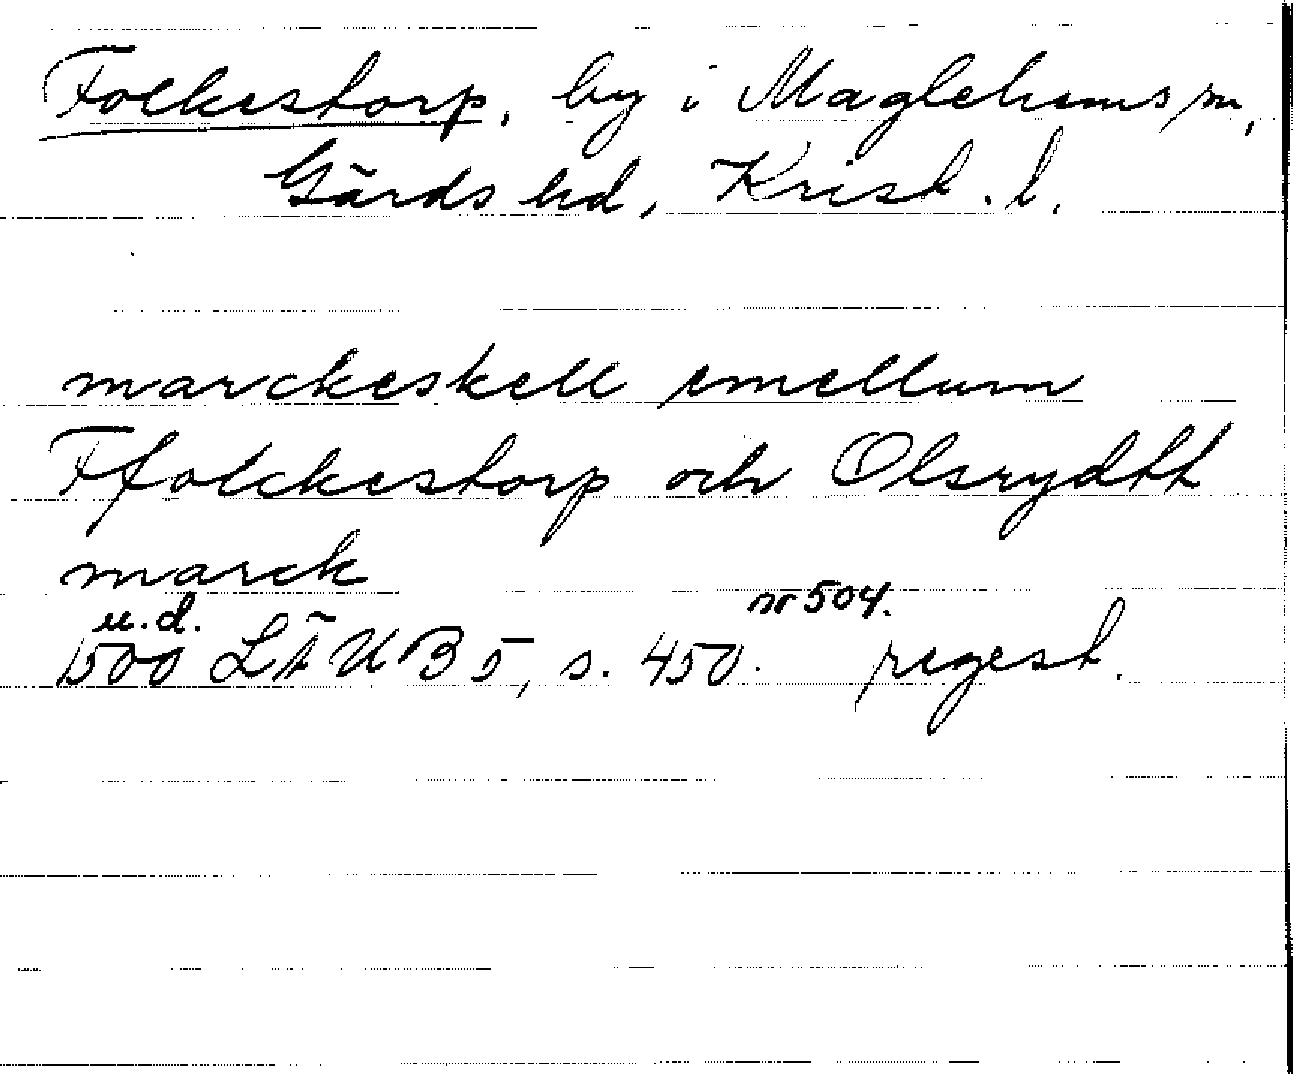 Folkestorp, by i Maglehems sn,
Gärds hd, Krist. l.
marckeskell emellum
Ffolckestorp och Olsrydtt
marck
u.d. nr 504.
1500 LÄUB 5, s. 450. regest.